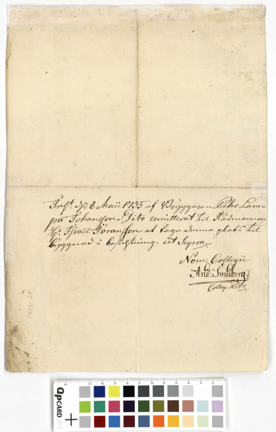 Inst. d. 8 Maii 1735 af Bryggaren Petter Lam-
pa Johansson. Dito remitterat til Rådmannen
Hr. Israel Göransson at taga denna plats til
Byggnad i besichtning. ut Supra
Nom: Collegii
And: Smiberg
Colleg. Not:
QPCARD